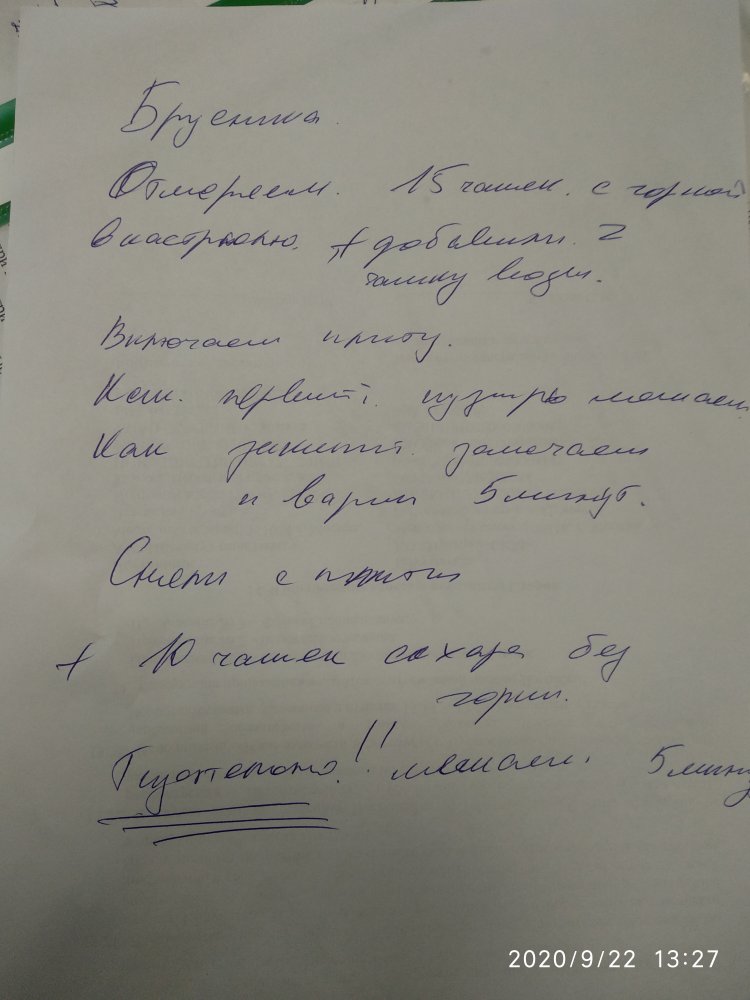 Брусника.
Отмеряем. 15 чашек. с горкой
в кастрюлю. + добавили. 2
чашку воды.
Включаем плиту.
Как. первый. пузырь мешаем
Как закипит. замечаем
и варим 5 минут.
Сняли с плиты
+ 10 чашек сахара без
горки.
Тщательно!!! мешаем. 5 мину
2020/9/22 13:27